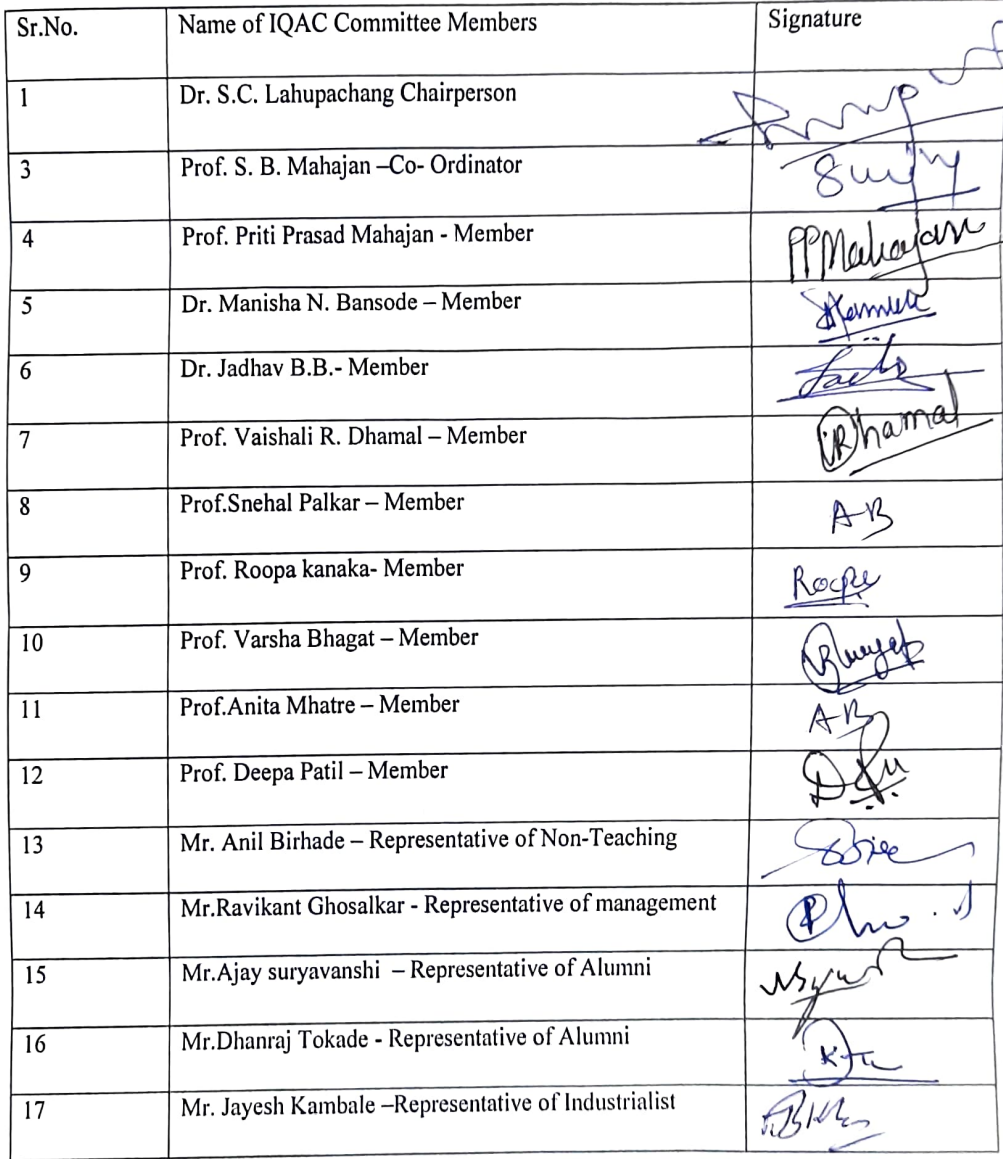 Sr.No. Name of IQAC Committee Members Signature
1 Dr. S.C. Lahupachang Chairperson
3 Prof. S. B. Mahajan –Co- Ordinator
4 Prof. Priti Prasad Mahajan - Member PPMahajan
5 Dr. Manisha N. Bansode – Member
6 Dr. Jadhav B.B.- Member
7 Prof. Vaishali R. Dhamal – Member VRDhamal
8 Prof.Snehal Palkar – Member AB
9 Prof. Roopa kanaka- Member
10 Prof. Varsha Bhagat – Member
11 Prof.Anita Mhatre – Member AB
12 Prof. Deepa Patil – Member
13 Mr. Anil Birhade – Representative of Non-Teaching
14 Mr.Ravikant Ghosalkar - Representative of management
15 Mr.Ajay suryavanshi – Representative of Alumni
16 Mr.Dhanraj Tokade - Representative of Alumni
17 Mr. Jayesh Kambale –Representative of Industrialist